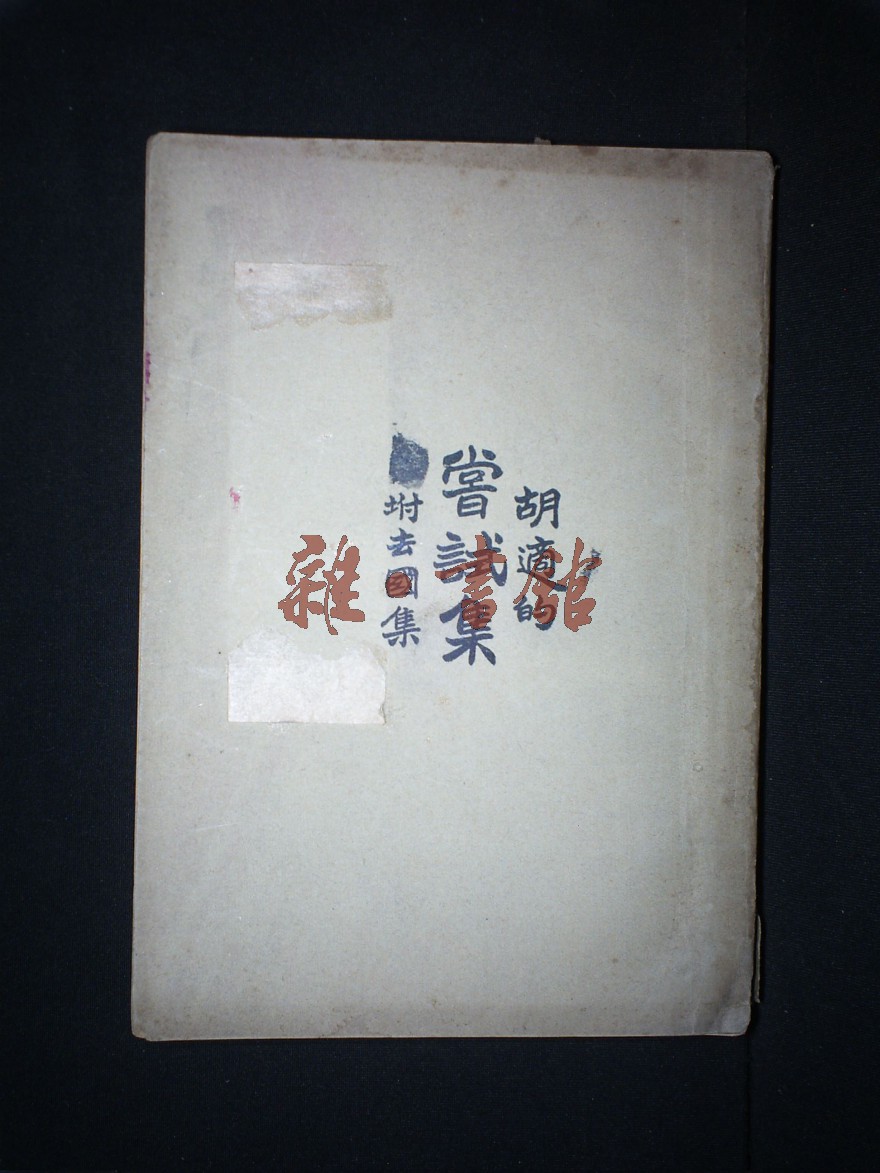 胡適的
嘗試集
坿去國集
雜·書館